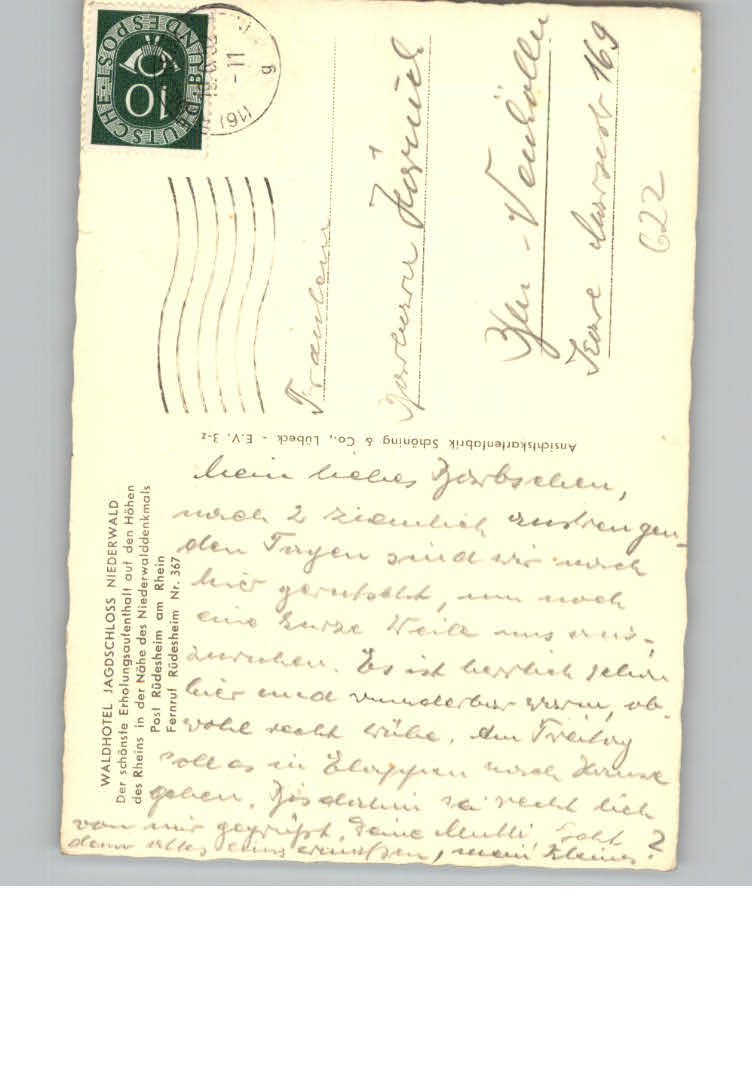 DEUTSCHE BUNDESPOST
10
(16)
-11
g
Fräulein
Barbara
Bln - Neukölln
Karl Marxstr 169
622
Ansichtskartenfabrik Schöning & Co., Lübeck - E.V. 3-z
WALDHOTEL JAGDSCHLOSS NIEDERWALD
Der schönste Erholungsaufenthalt auf den Höhen
des Rheins in der Nähe des Niederwalddenkmals
Post Rüdesheim am Rhein
Fernruf Rüdesheim Nr. 367
Mein liebes Bärbchen,
nach 2 ziemlich anstrengen-
den Tagen sind wir nach
hier gerutscht, um noch
eine kurze Weile uns aus-
zuruhen. Es ist herrlich schön
hier und wunderbar warm, ob-
wohl recht trübe. Am Freitag
soll es in Etappen nach Hause
gehen. Bis dahin sei recht lieb
von mir gegrüßt. Deine Mutti Geht
denn alles einigermaßen, mein Kleines?